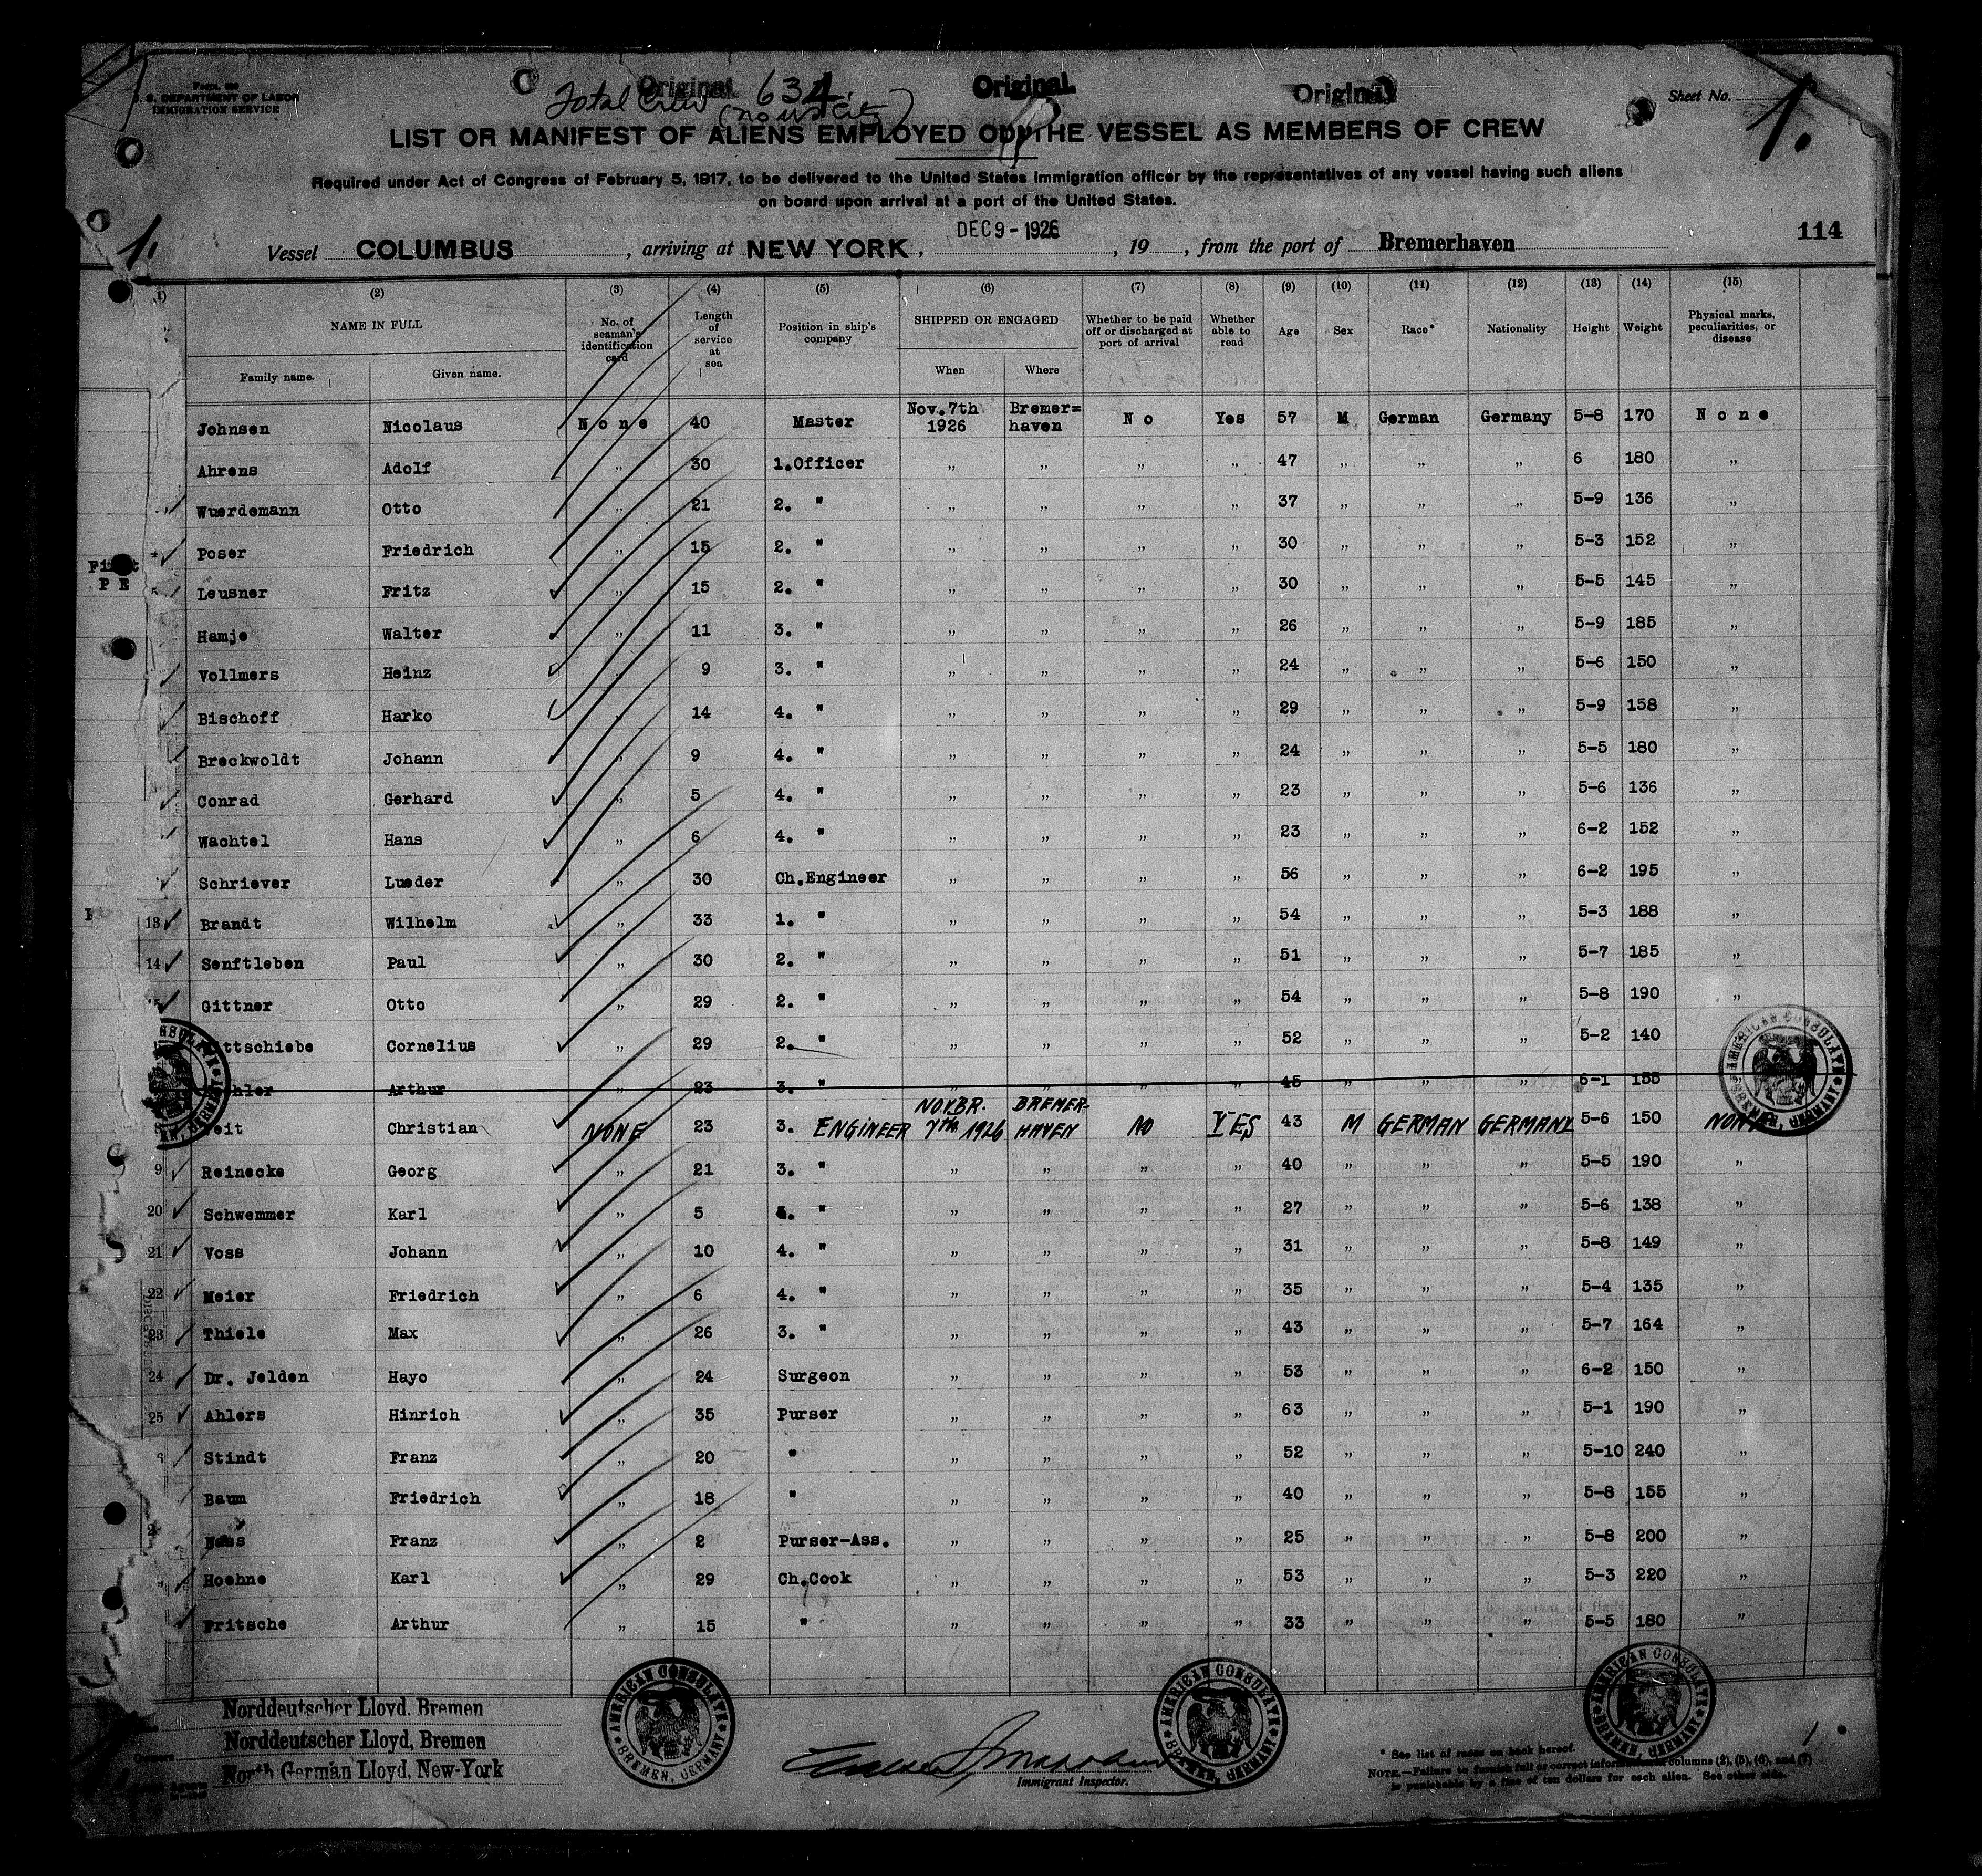 Form 680
U. S. DEPARTMENT OF LABOR
IMMIGRATION SERVICE
Original Original Original
Total Crew 634.
Sheet No. 1.
LIST OR MANIFEST OF ALIENS EMPLOYED ON THE VESSEL AS MEMBERS OF CREW
Required under Act of Congress of February 5, 1917, to be delivered to the United States immigration officer by the representatives of any vessel having such aliens
on board upon arrival at a port of the United States.
1. Vessel COLUMBUS, arriving at NEW YORK, DEC 9 - 1926, 19, from the port of Bremerhaven 114
(1) (2) (3) (4) (5) (6) (7) (8) (9) (10) (11) (12) (13) (14) (15)
NAME IN FULL No. of seaman's identification card Length of service at sea Position in ship's company SHIPPED OR ENGAGED Whether to be paid off or discharged at port of arrival Whether able to read Age Sex Race* Nationality Height Weight Physical marks, peculiarities, or disease
Family name. Given name. When Where
Johnsen Nicolaus None 40 Master Nov. 7th 1926 Bremer=haven No Yes 57 M German Germany 5-8 170 None
Ahrens Adolf " 30 1.Officer " " " " 47 " " " 6 180 "
Wuerdemann Otto " 21 2. " " " " " 37 " " " 5-9 136 "
4 Poser Friedrich " 15 2. " " " " " 30 " " " 5-3 152 "
5 Leusner Fritz " 15 2. " " " " " 30 " " " 5-5 145 "
Hamje Walter " 11 3. " " " " " 26 " " " 5-9 185 "
Vollmers Heinz " 9 3. " " " " " 24 " " " 5-6 150 "
Bischoff Harko " 14 4. " " " " " 29 " " " 5-9 158 "
Breckwoldt Johann " 9 4. " " " " " 24 " " " 5-5 180 "
Conrad Gerhard " 5 4. " " " " " 23 " " " 5-6 136 "
Wachtel Hans " 6 4. " " " " " 23 " " " 6-2 152 "
Schriever Lueder " 30 Ch.Engineer " " " " 56 " " " 6-2 195 "
13 Brandt Wilhelm " 33 1. " " " " " 54 " " " 5-3 188 "
14 Senftleben Paul " 30 2. " " " " " 51 " " " 5-7 185 "
15 Gittner Otto " 29 2. " " " " " 54 " " " 5-8 190 "
Cornelius " 29 2. " " " " " 52 " " " 5-2 140
Arthur " 23 3. " " " " " 45 " " " 6-1 155
Christian NONE 23 3. ENGINEER NOVBR. 7th 1926 BREMER-HAVEN NO YES 43 M GERMAN GERMANY 5-6 150 NONE
9 Reinecke Georg " 21 3. " " " " " 40 " " " 5-5 190 "
20 Schwemmer Karl " 5 " " " " " 27 " " " 5-6 138 "
21 Voss Johann " 10 4. " " " " " 31 " " " 5-8 149 "
22 Meier Friedrich " 6 4. " " " " " 35 " " " 5-4 135 "
23 Thiele Max " 26 3. " " " " " 43 " " " 5-7 164 "
24 Dr. Jelden Hayo " 24 Surgeon " " " " 53 " " " 6-2 150 "
25 Ahlers Hinrich " 35 Purser " " " " 63 " " " 5-1 190 "
6 Stindt Franz " 20 " " " " " 52 " " " 5-10 240 "
Baum Friedrich " 18 " " " " " 40 " " " 5-8 155 "
Franz " 2 Purser-Ass. " " " " 25 " " " 5-8 200 "
Hoehne Karl " 29 Ch.Cook " " " " 53 " " " 5-3 220 "
Fritsche Arthur " 15 " " " " " 33 " " " 5-5 180 "
AMERICAN CONSULATE BREMEN, GERMANY
AMERICAN CONSULATE BREMEN, GERMANY
AMERICAN CONSULATE BREMEN, GERMANY
Norddeutscher Lloyd, Bremen
Owners Norddeutscher Lloyd, Bremen
North German Lloyd, New-York
Immigrant Inspector.
* See list of races on back hereof.
NOTE.—Failure to furnish full or correct information columns (2), (5), (6), and (7)
is punishable by a fine of ten dollars for each alien. See other side.